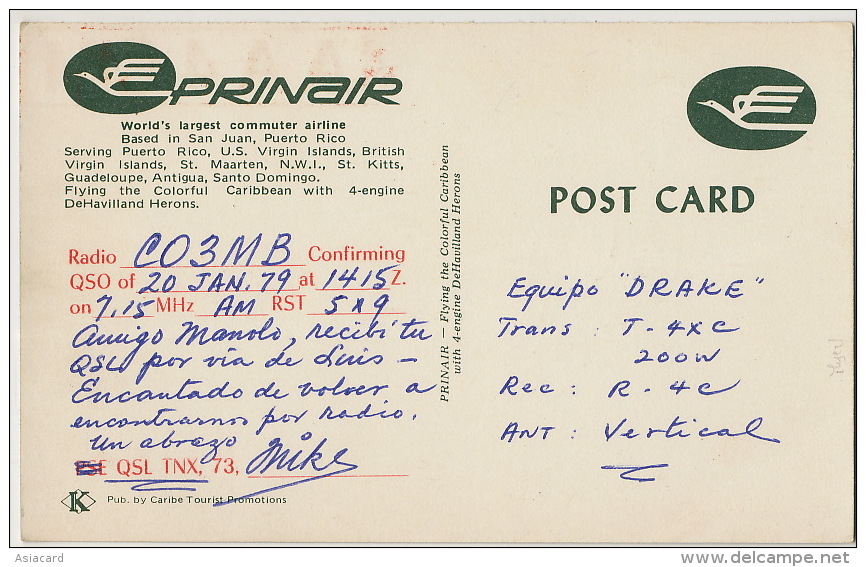 PRINAIR
World's largest commuter airline
Based in San Juan, Puerto Rico
Serving Puerto Rico, U.S. Virgin Islands, British
Virgin Islands, St. Maarten, N.W.I., St. Kitts,
Guadeloupe, Antigua, Santo Domingo.
Flying the Colorful Caribbean with 4-engine
DeHavilland Herons.
Radio CO3MB Confirming
QSO of 20 JAN. 79 at 1415 Z.
on 7,15 MHz AM RST 5x9
Amigo Manolo, recibi tu
QSL por via de Luis —
Encantado de volver a
encontrarnos por radio.
Un abrazo
QSL TNX, 73, Mike
K
Pub. by Caribe Tourist Promotions
PRINAIR — Flying the Colorful Caribbean
with 4-engine DeHavilland Herons
POST CARD
Equipo "DRAKE"
Trans : T-4XC
200W
Rec : R-4C
ANT : Vertical
Asiacard
www.delcampe.net